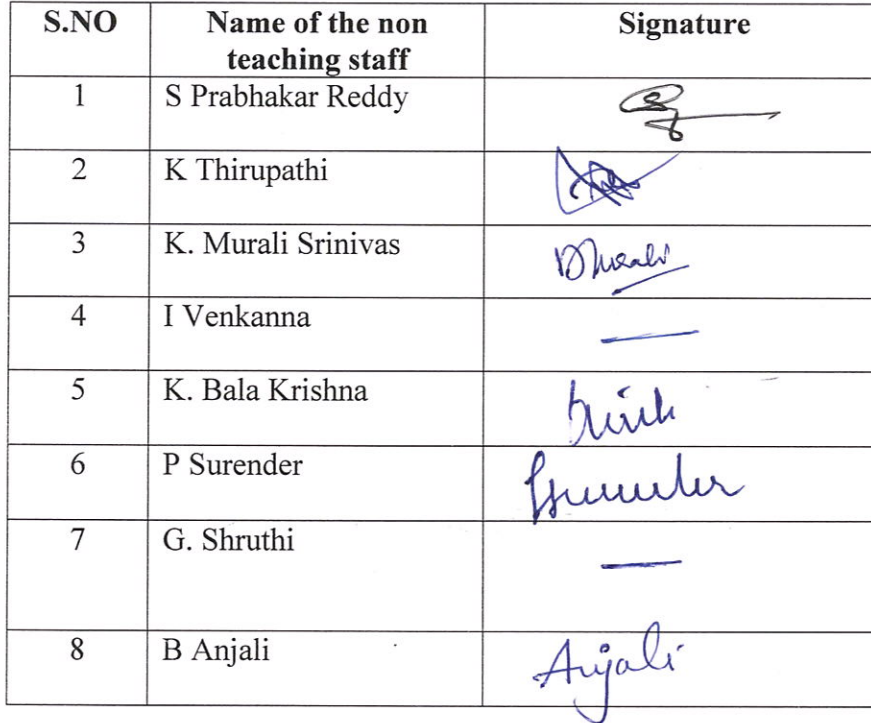 S.NO Name of the non teaching staff Signature
1 S Prabhakar Reddy
2 K Thirupathi
3 K. Murali Srinivas
4 I Venkanna —
5 K. Bala Krishna
6 P Surender
7 G. Shruthi —
8 B Anjali Anjali